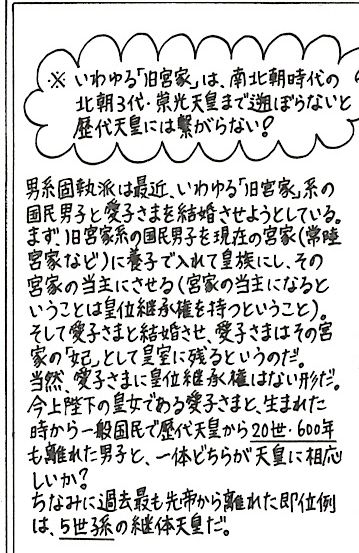 ※ いわゆる「旧宮家」は、南北朝時代の
北朝3代・崇光天皇まで遡ぼらないと
歴代天皇には繋がらない!
男系固執派は最近、いわゆる「旧宮家」系の
国民男子と愛子さまを結婚させようとしている。
まず、旧宮家系の国民男子を現在の宮家(常陸
宮家など)に養子で入れて皇族にし、その
宮家の当主にさせる(宮家の当主になると
いうことは皇位継承権を持つということ)。
そして愛子さまと結婚させ、愛子さまはその宮
家の「妃」として皇室に残るというのだ。
当然、愛子さまに皇位継承権はない形だ。
今上陛下の皇女である愛子さまと、生まれた
時から一般国民で歴代天皇から20世・600年
も離れた男子と、一体どちらが天皇に相応
しいか?
ちなみに過去最も先帝から離れた即位例
は、5世子孫の継体天皇だ。